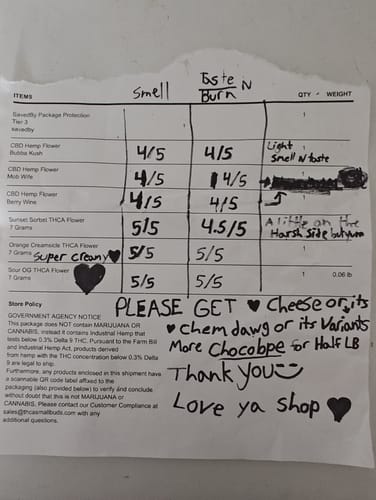 Smell Taste N
ITEMS Burn QTY - WEIGHT
SavedBy Package Protection 1
Tier 3
savedby
CBD Hemp Flower 4/5 4/5 Light
Bubba Kush Smell N taste
CBD Hemp Flower 4/5 4/5 1
Mob Wife
CBD Hemp Flower 4/5 4/5
Berry Wine
Sunset Sorbet THCA Flower 5/5 4.5/5 A little on the
7 Grams Harsh Side but
Orange Creamsicle THCA Flower 5/5 5/5 1
7 Grams Super creamy
Sour OG THCA Flower 5/5 5/5 1 0.06 lb
7 Grams
Store Policy PLEASE GET ♥ Cheese or its
GOVERNMENT AGENCY NOTICE
This package does NOT contain MARIJUANA OR ♥ chem dawg or its Variants
CANNABIS, instead it contains Industrial Hemp that
tests below 0.3% Delta 9 THC. Pursuant to the Farm Bill More Chocobpe for Half LB
and Industrial Hemp Act, products derived
from hemp with the THC concentration below 0.3% Delta
9 are legal to ship. Thank you
Furthermore, any products enclosed in this shipment have
a scannable QR code label affixed to the
packaging (also provided below) to verify and conclude Love ya shop ♥
without doubt that this is not MARIJUANA or
CANNABIS. Please contact our Customer Compliance at
sales@thcasmallbuds.com with any
additional questions.